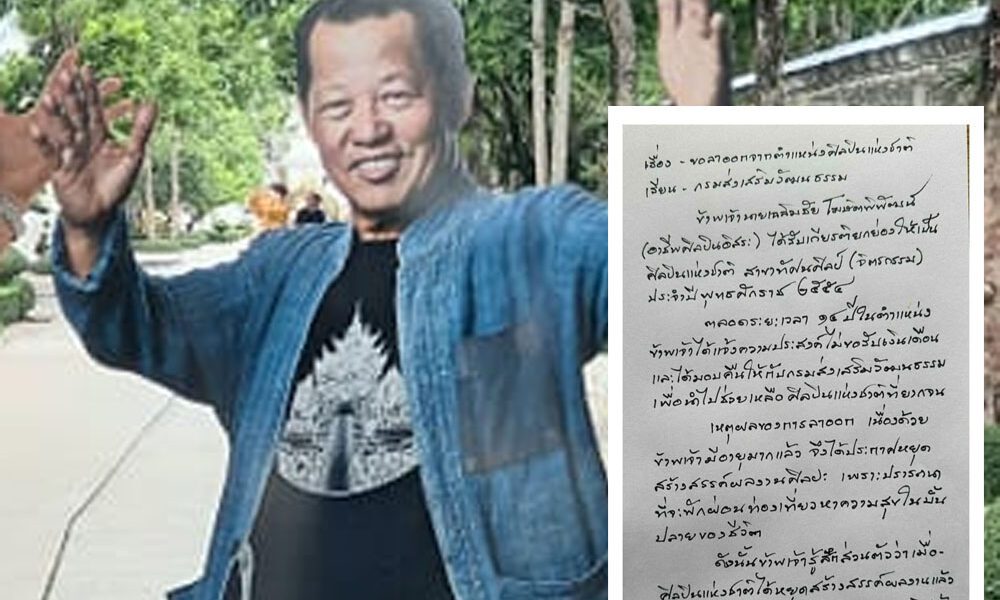 เรื่อง - ขอลาออกจากตำแหน่งศิลปินแห่งชาติ
เรียน - กรมส่งเสริมวัฒนธรรม
ข้าพเจ้านายเฉลิมชัย โฆษิตพิพัฒน์
(อาชีพศิลปินอิสระ) ได้รับเกียรติยกย่องให้เป็น
ศิลปินแห่งชาติ สาขาทัศนศิลป์ (จิตรกรรม)
ประจำปี พุทธศักราช ๒๕๕๔
ตลอดระยะเวลา ๑๔ ปีในตำแหน่ง
ข้าพเจ้าได้แจ้งความประสงค์ไม่ขอรับเงินเดือน
และได้มอบคืนให้กับกรมส่งเสริมวัฒนธรรม
เพื่อนำไปช่วยเหลือศิลปินแห่งชาติที่ยากจน
เหตุผลของการลาออก เนื่องด้วย
ข้าพเจ้ามีอายุมากแล้ว จึงได้ประกาศหยุด
สร้างสรรค์ผลงานศิลปะ เพราะปรารถนา
ที่จะพักผ่อนท่องเที่ยวหาความสุขในบั้น
ปลายของชีวิต
ดังนั้นข้าพเจ้ารู้สึกส่วนตัวว่าเมื่อ-
ศิลปินแห่งชาติได้หยุดสร้างสรรค์ผลงานแล้ว